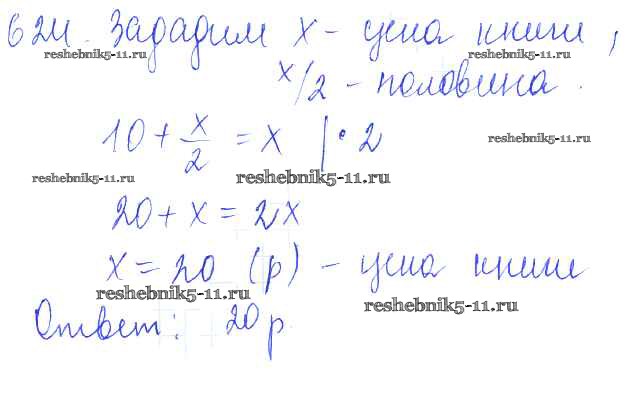 624. Зададим x - цена книги,
reshebnik5-11.ru reshebnik5-11.ru
x/2 - половина.
10 + x/2 = x | · 2
reshebnik5-11.ru
reshebnik5-11.ru reshebnik5-11.ru
20 + x = 2x
x = 20 (р) - цена книги
reshebnik5-11.ru reshebnik5-11.ru
Ответ: 20 р.